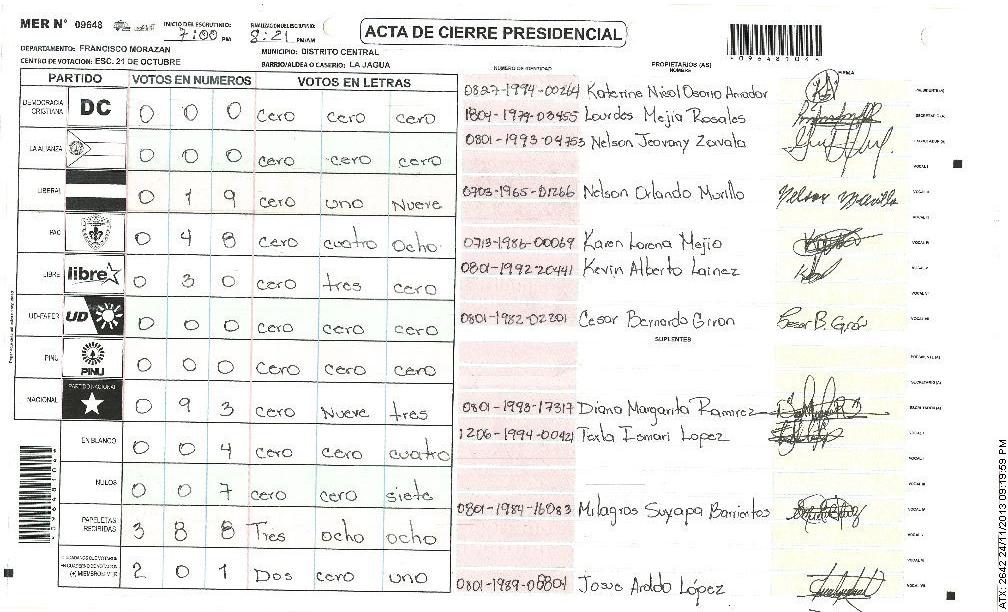 MER N° 09648
INICIO DEL ESCRUTINIO: 7:00 PM
FINALIZACION DEL ESCRUTINIO: 8:21 PM/AM
ACTA DE CIERRE PRESIDENCIAL
DEPARTAMENTO: FRANCISCO MORAZAN
MUNICIPIO: DISTRITO CENTRAL
CENTRO DE VOTACION: ESC. 21 DE OCTUBRE
BARRIO/ALDEA O CASERIO: LA JAGUA
PARTIDO VOTOS EN NUMEROS VOTOS EN LETRAS
DEMOCRACIA CRISTIANA DC 0 0 0 cero cero cero
LA ALIANZA 0 0 0 cero cero cero
LIBERAL 0 1 9 cero uno Nueve
PAC 0 4 8 cero cuatro ocho
LIBRE libre 0 3 0 cero tres cero
UD-FAPER UD 0 0 0 cero cero cero
PINU PINU 0 0 0 cero cero cero
NACIONAL PARTIDO NACIONAL 0 9 3 cero Nueve tres
EN BLANCO 0 0 4 cero cero cuatro
NULOS 0 0 7 cero cero siete
PAPELETAS RECIBIDAS 3 8 8 Tres ocho ocho
2 0 1 Dos cero uno
NUMERO DE IDENTIDAD PROPIETARIOS (AS) NOMBRE FIRMA
*09648104*
0827-1994-00264 Katerine Nicol Osorio Amador PRESIDENTE(A)
1804-1979-03455 Lourdes Mejia Rosales SECRETARIO(A)
0801-1993-04753 Nelson Jeovany Zavala ESCRUTADOR(A)
VOCAL I
0703-1965-01266 Nelson Orlando Murillo Nelson Murillo VOCAL II
VOCAL III
0713-1986-00069 Karen Lorena Mejio VOCAL IV
0801-1992-20441 Kevin Alberto Lainez VOCAL V
VOCAL VI
0801-1982-02201 Cesar Bernardo Giron Cesar B. Girón VOCAL VII
SUPLENTES
PRESIDENTE(A)
SECRETARIO(A)
0801-1993-17317 Diana Margarita Ramirez ESCRUTADOR(A)
1206-1994-00421 Texla Ismari Lopez VOCAL I
VOCAL II
VOCAL III
0801-1984-16083 Milagros Suyapa Barrientos VOCAL IV
VOCAL V
VOCAL VI
0801-1989-08801 Josue Aroldo López VOCAL VII
ATX: 2642 24/11/2013 09:19:59 PM